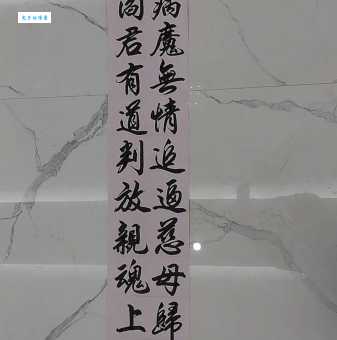 病魔無情追逼慈母歸
閻君有道判放親魂上